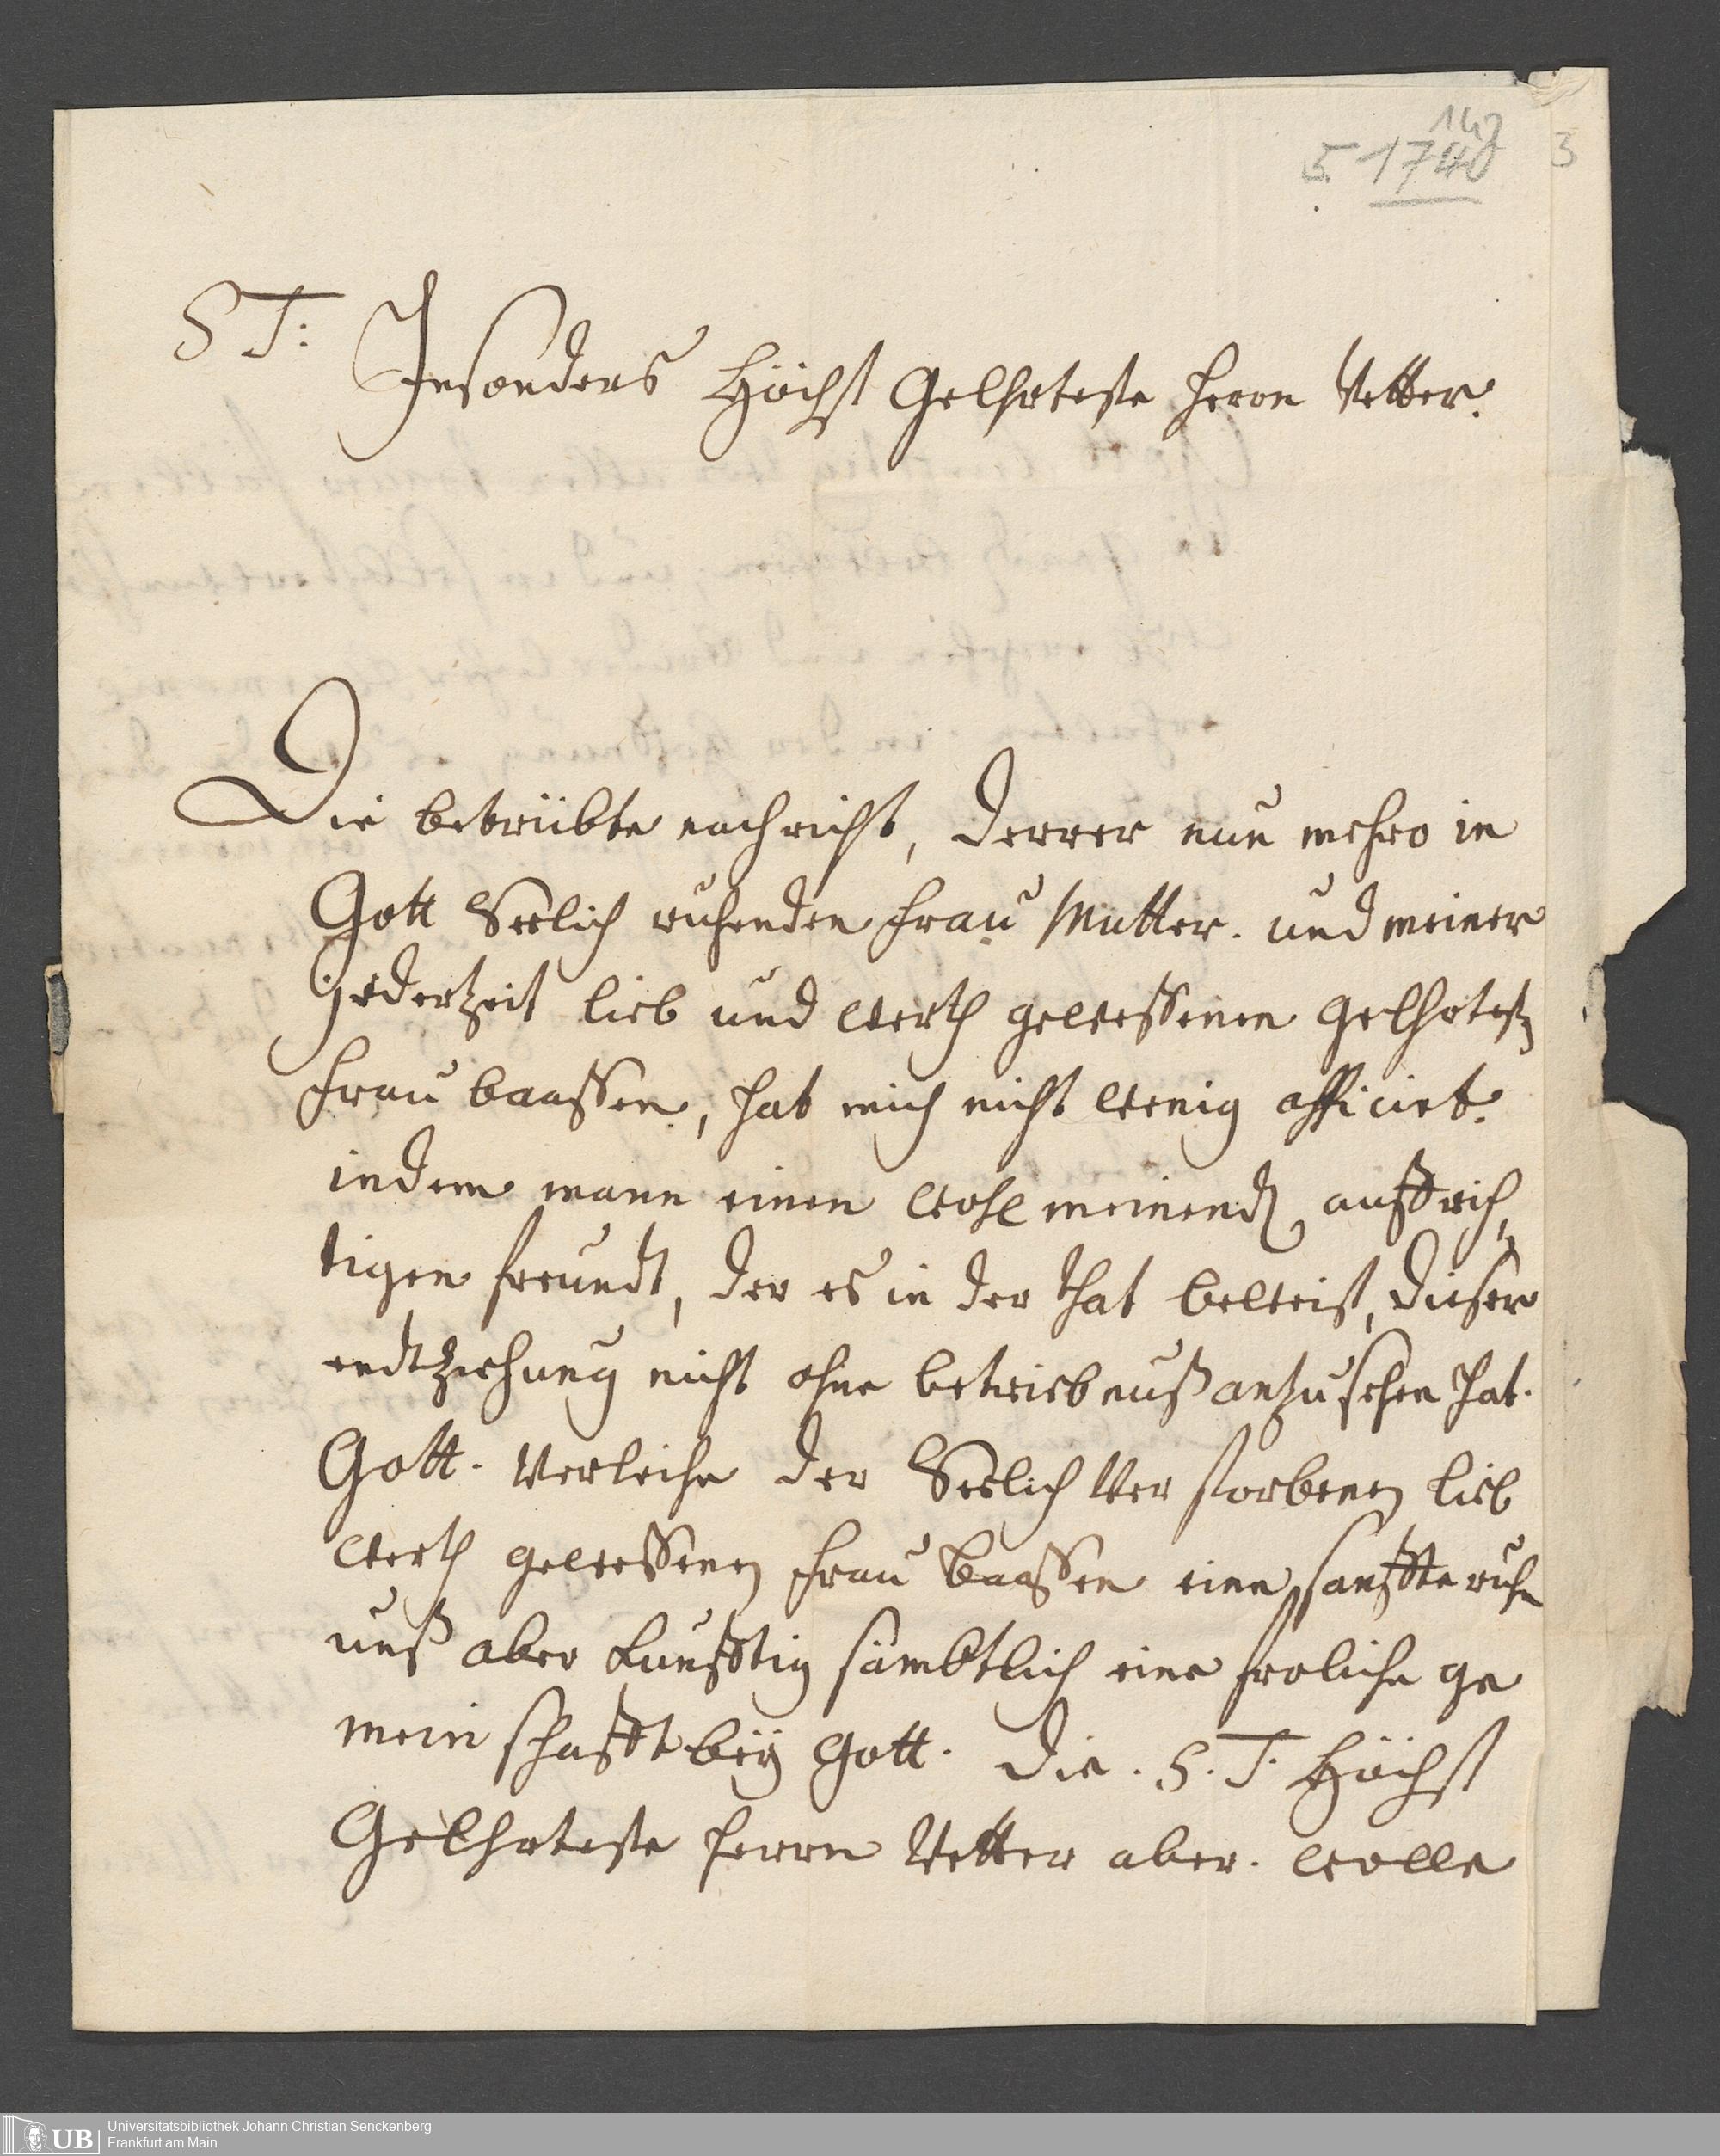 149
5. 1740
3
S T: Insonders Höchst Gelhrteste Herrn Vetter.
Die betrübte nachricht, derrer nun mehro in
Gott Seelich ruhenden Frau Mutter. und meiner
jederzeit lieb und werth gewessenen gelhrtest
Frau baassen, hat mich nicht wenig afficirt.
indem mann einen wohl meinend auffrich,
tigen freundt, der es in der that beweist, dieser
endtziehung nicht ohne betriebnuß anzusehen hat.
Gott. Verleihe der Seelich Verstorbenen lieb
werth gewessenen Frau Baassen eine sanffte ruhe
unß aber künfftig sämbtlich eine froliche ge
mein schafft beÿ Gott. Die. S. T. Höchst
Gelhrteste Herrn Vetter aber. wolle
UB Universitätsbibliothek Johann Christian Senckenberg
Frankfurt am Main